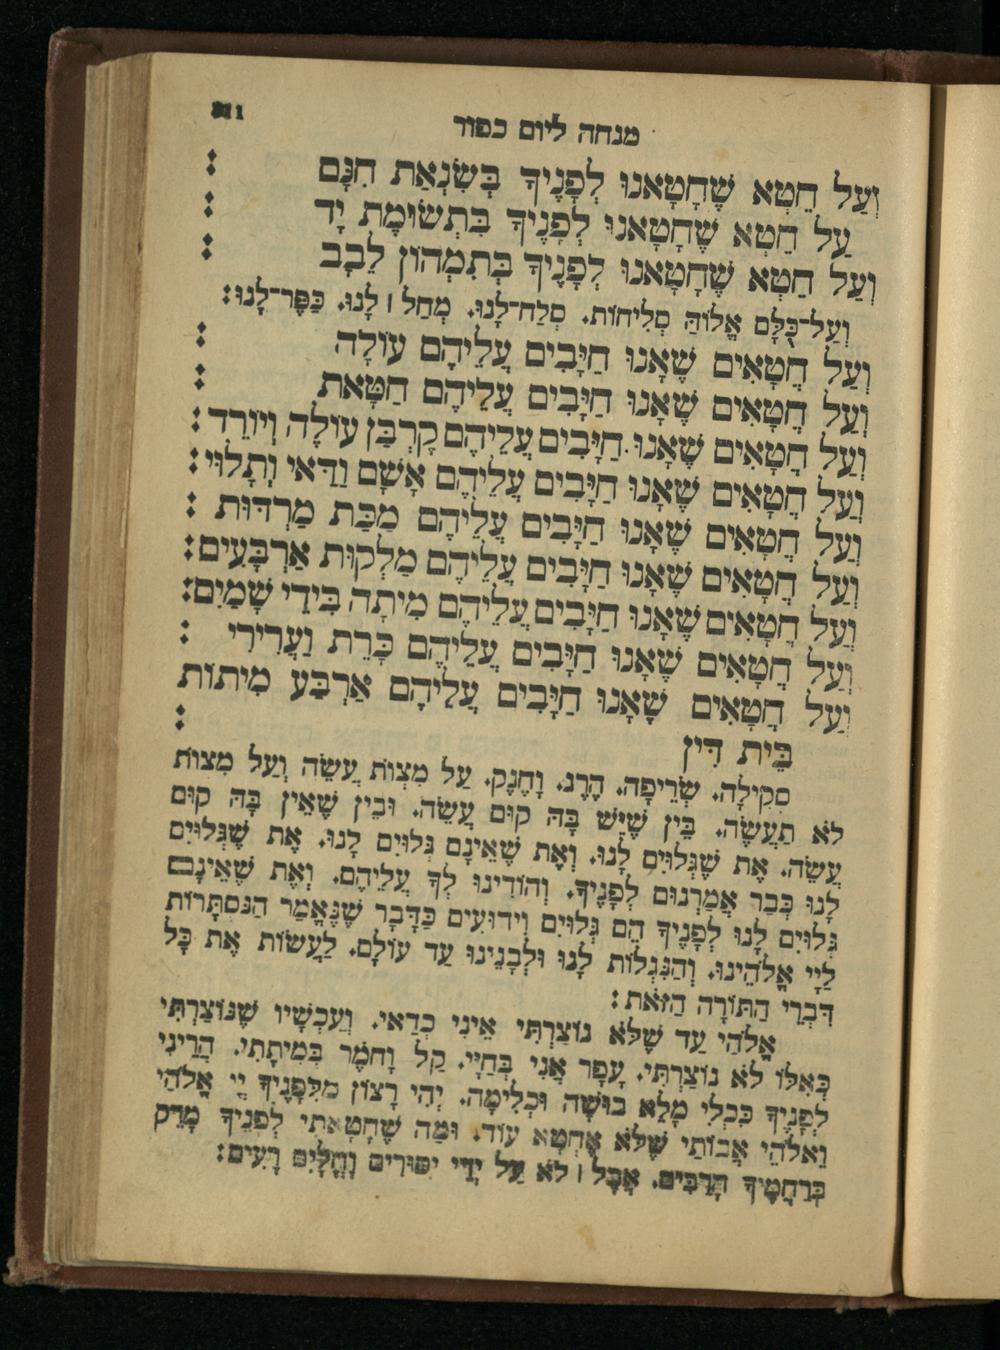 מנחה ליום כפור
וְעַל חֵטְא שֶׁחָטָאנוּ לְפָנֶיךָ בְּשִׂנְאַת חִנָּם :
עַל חֵטְא שֶׁחָטָאנוּ לְפָנֶיךָ בִּתְשׂוּמֶת יָד :
וְעַל חֵטְא שֶׁחָטָאנוּ לְפָנֶיךָ בְּתִמְהוֹן לֵבָב :
וְעַל־כֻּלָּם אֱלוֹהַּ סְלִיחוֹת. סְלַח־לָנוּ. מְחַל ׀ לָנוּ. כַּפֶּר־לָנוּ :
וְעַל חֲטָאִים שֶׁאָנוּ חַיָּבִים עֲלֵיהֶם עוֹלָה :
וְעַל חֲטָאִים שֶׁאָנוּ חַיָּבִים עֲלֵיהֶם חַטָּאת :
וְעַל חֲטָאִים שֶׁאָנוּ חַיָּבִים עֲלֵיהֶם קָרְבַּן עוֹלֶה וְיוֹרֵד :
וְעַל חֲטָאִים שֶׁאָנוּ חַיָּבִים עֲלֵיהֶם אָשָׁם וַדַּאי וְתָלוּי :
וְעַל חֲטָאִים שֶׁאָנוּ חַיָּבִים עֲלֵיהֶם מַכַּת מַרְדּוּת :
וְעַל חֲטָאִים שֶׁאָנוּ חַיָּבִים עֲלֵיהֶם מַלְקוּת אַרְבָּעִים :
וְעַל חֲטָאִים שֶׁאָנוּ חַיָּבִים עֲלֵיהֶם מִיתָה בִּידֵי שָׁמַיִם :
וְעַל חֲטָאִים שֶׁאָנוּ חַיָּבִים עֲלֵיהֶם כָּרֵת וַעֲרִירִי :
וְעַל חֲטָאִים שֶׁאָנוּ חַיָּבִים עֲלֵיהֶם אַרְבַּע מִיתוֹת
בֵּית דִּין :
סְקִילָה. שְׂרֵיפָה. הֶרֶג. וָחֶנֶק. עַל מִצְוֹת עֲשֵׂה וְעַל מִצְוֹת
לֹא תַעֲשֶׂה. בֵּין שֶׁיֵּשׁ בָּהּ קוּם עֲשֵׂה. וּבֵין שֶׁאֵין בָּהּ קוּם
עֲשֵׂה. אֶת שֶׁגְּלוּיִם לָנוּ. וְאֶת שֶׁאֵינָם גְּלוּיִם לָנוּ. אֶת שֶׁגְּלוּיִם
לָנוּ כְּבָר אֲמַרְנוּם לְפָנֶיךָ. וְהוֹדִינוּ לְךָ עֲלֵיהֶם. וְאֶת שֶׁאֵינָם
גְּלוּיִם לָנוּ לְפָנֶיךָ הֵם גְּלוּיִם וִידוּעִים כַּדָּבָר שֶׁנֶּאֱמַר הַנִּסְתָּרוֹת
לַיְיָ אֱלֹהֵינוּ. וְהַנִּגְלוֹת לָנוּ וּלְבָנֵינוּ עַד עוֹלָם. לַעֲשׂוֹת אֶת כָּל
דִּבְרֵי הַתּוֹרָה הַזֹּאת :
אֱלֹהַי עַד שֶׁלֹּא נוֹצַרְתִּי אֵינִי כְדַאי. וְעַכְשָׁיו שֶׁנּוֹצַרְתִּי
כְּאִלּוּ לֹא נוֹצַרְתִּי. עָפָר אֲנִי בְּחַיָּי. קַל וָחֹמֶר בְּמִיתָתִי. הֲרֵינִי
לְפָנֶיךָ כִּכְלִי מָלֵא בוּשָׁה וּכְלִימָה. יְהִי רָצוֹן מִלְּפָנֶיךָ יְיָ אֱלֹהַי
וֵאלֹהֵי אֲבוֹתַי שֶׁלֹּא אֶחֱטָא עוֹד. וּמַה שֶּׁחָטָאתִי לְפָנֶיךָ מָרֵק
בְּרַחֲמֶיךָ הָרַבִּים. אֲבָל ׀ לֹא עַל יְדֵי יִסּוּרִים וָחֳלָיִם רָעִים :